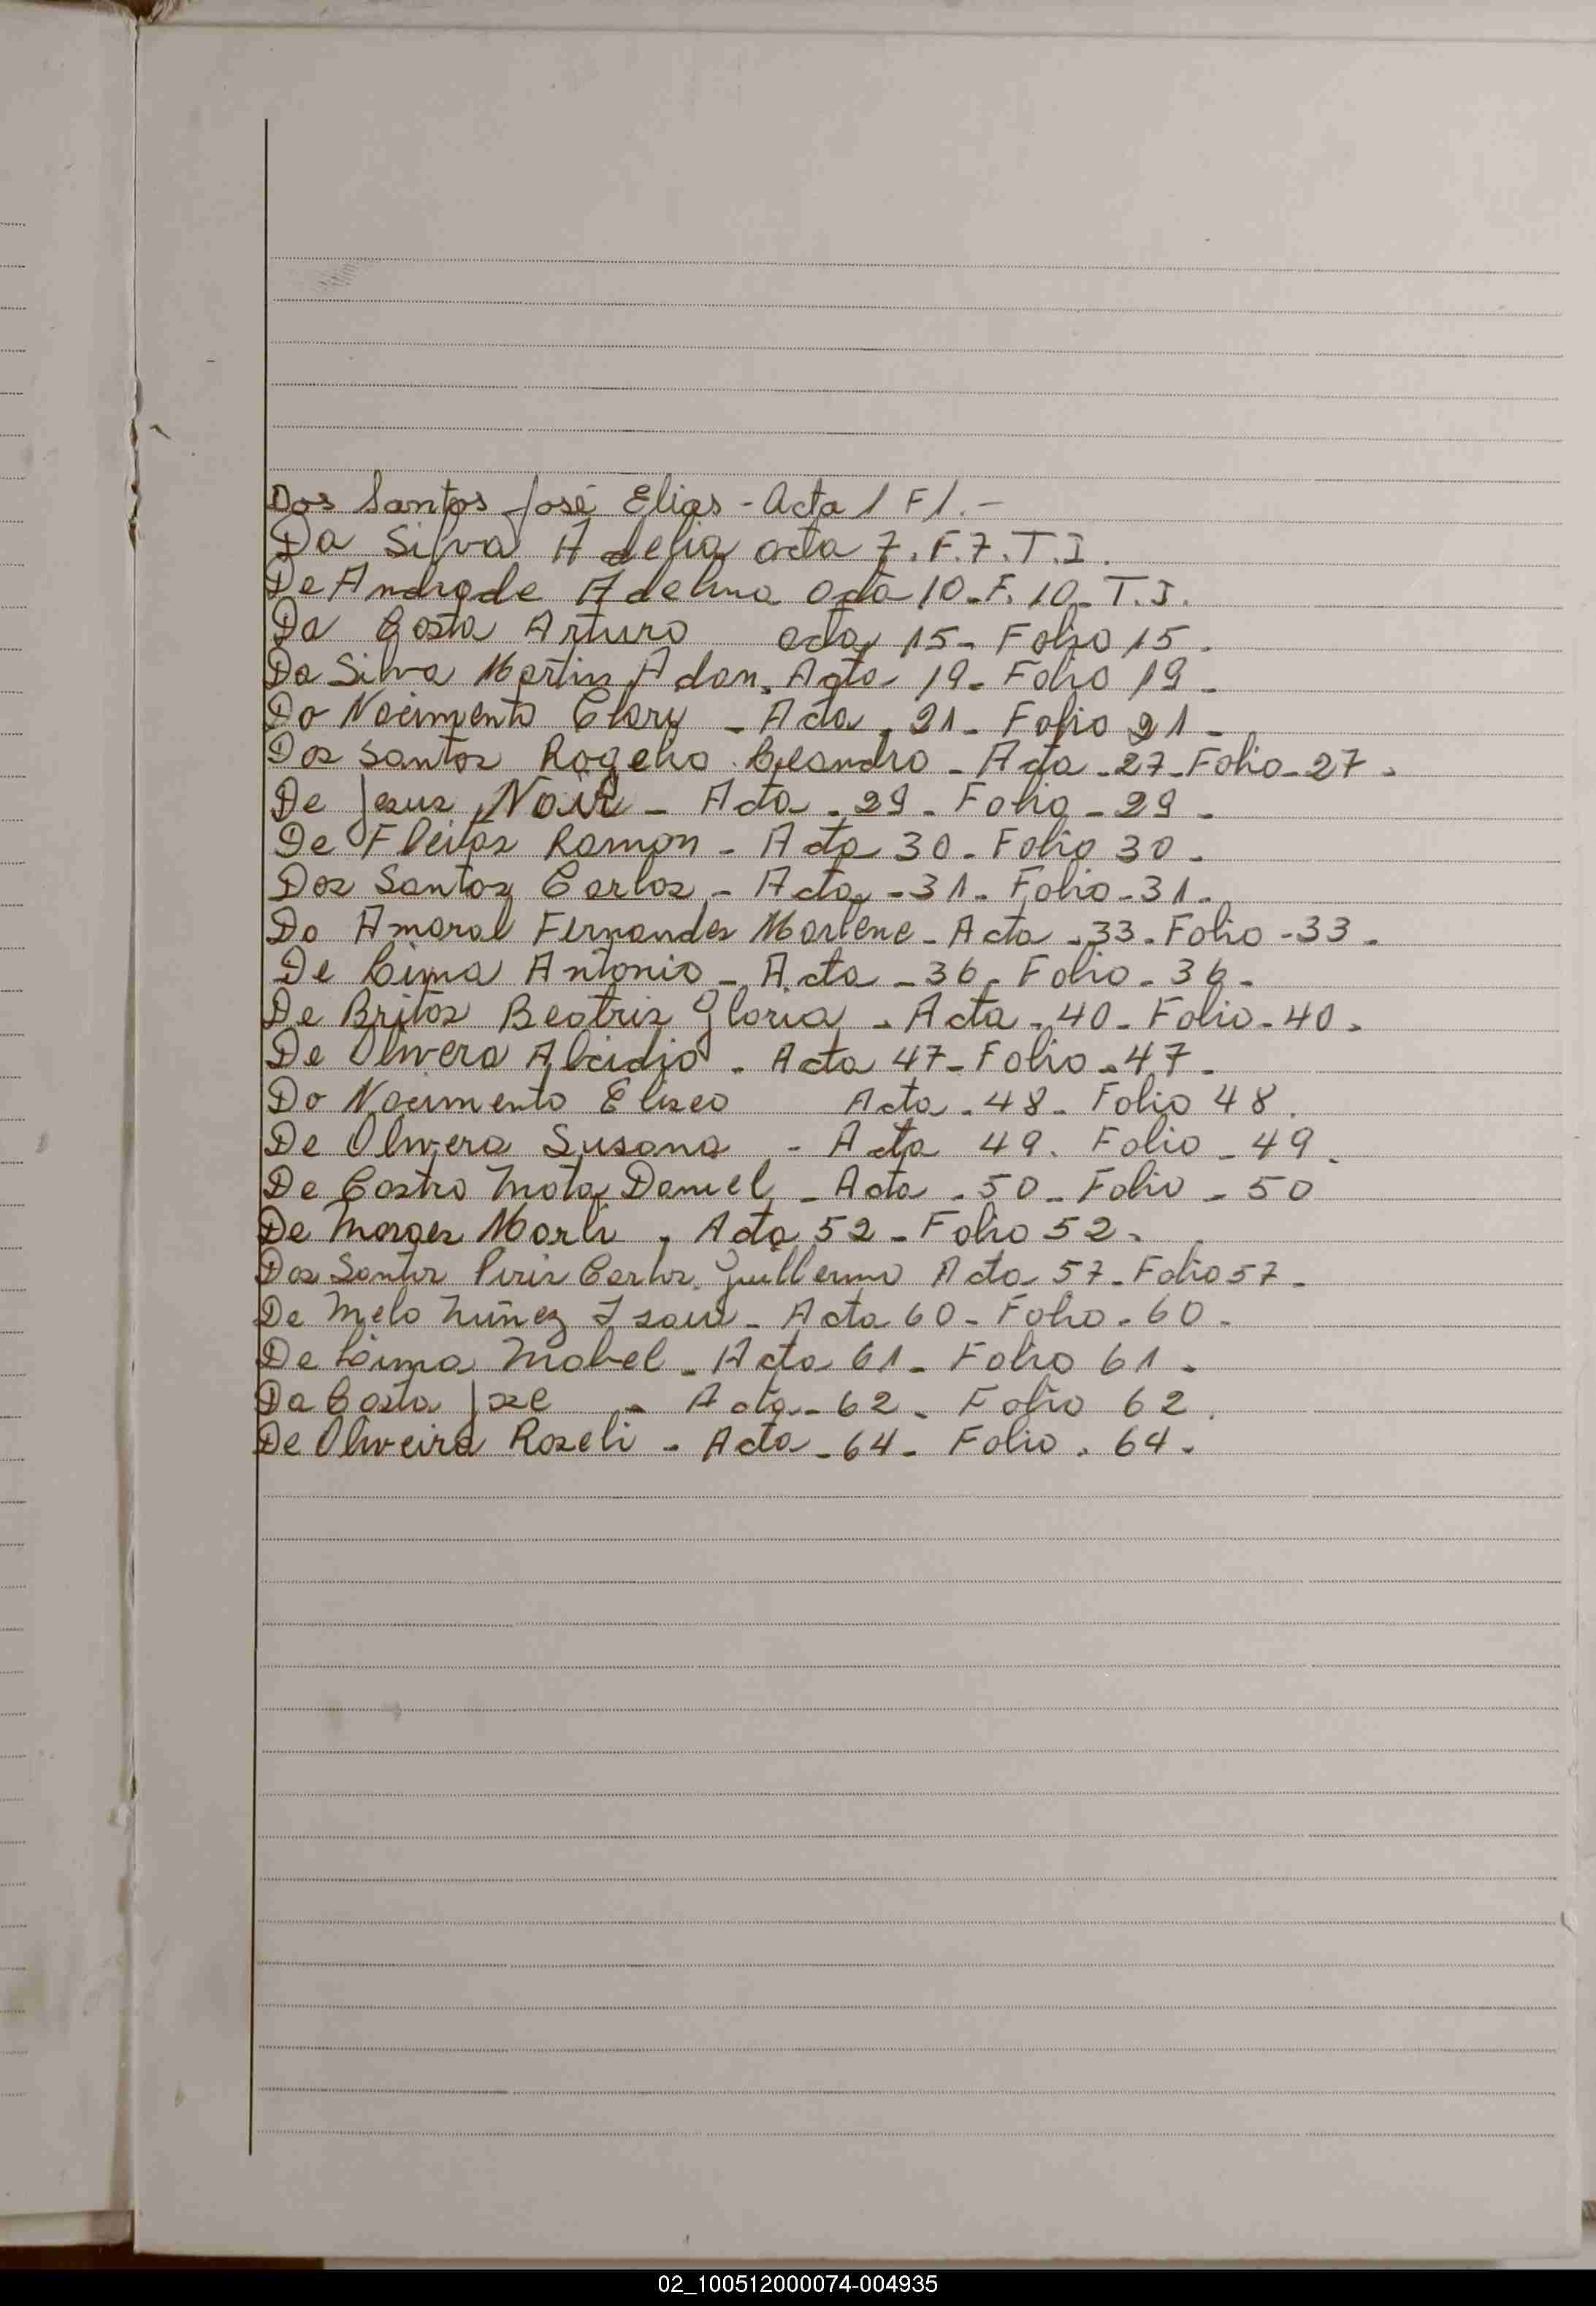 Dos Santos José Elias - Acta 1 F1.-
Da Silva Adelia acta 7. F.7. T.I.
De Andrade Adelina acta 10-F. 10- T.I.
Da Costa Arturo acta 15- Folio 15.
Da Silva Martins Adan. Acta 19- Folio 19-
Do Nacimento Clary - Acta . 21- Folio 21-
Dos Santos Rogelio Leandro - Acta -27-Folio-27.
De Jesus Nair - Acta - 29 - Folio - 29 -
De Fleitas Ramon - Acta 30 - Folio 30 -
Dos Santos Carlos - Acta - 31- Folio-31-
Do Amaral Fernandes Marlene - Acta -33- Folio -33-
De Lima Antonio - Acta - 36- Folio - 36-
De Britos Beatris Gloria - Acta - 40- Folio-40-
De Olivera Alcidio - Acta 47- Folio - 47-
Do Nacimento Eliseo Acta - 48- Folio 48.
De Olivera Susana - Acta 49. Folio - 49.
De Castro Mota Daniel - Acta - 50- Folio - 50
De Moraes Marli . Acta 52 - Folio 52-
Dos Santos Piris Carlos Guillermo Acta 57-Folio57-
De Melo Nuñez Isaul - Acta 60 - Folio - 60 -
De Lima Mabel - Acta 61- Folio 61 -
Da Costa José - Acta- 62 - Folio 62.
De Oliveira Roseli - Acta - 64- Folio . 64-
02_100512000074-004935